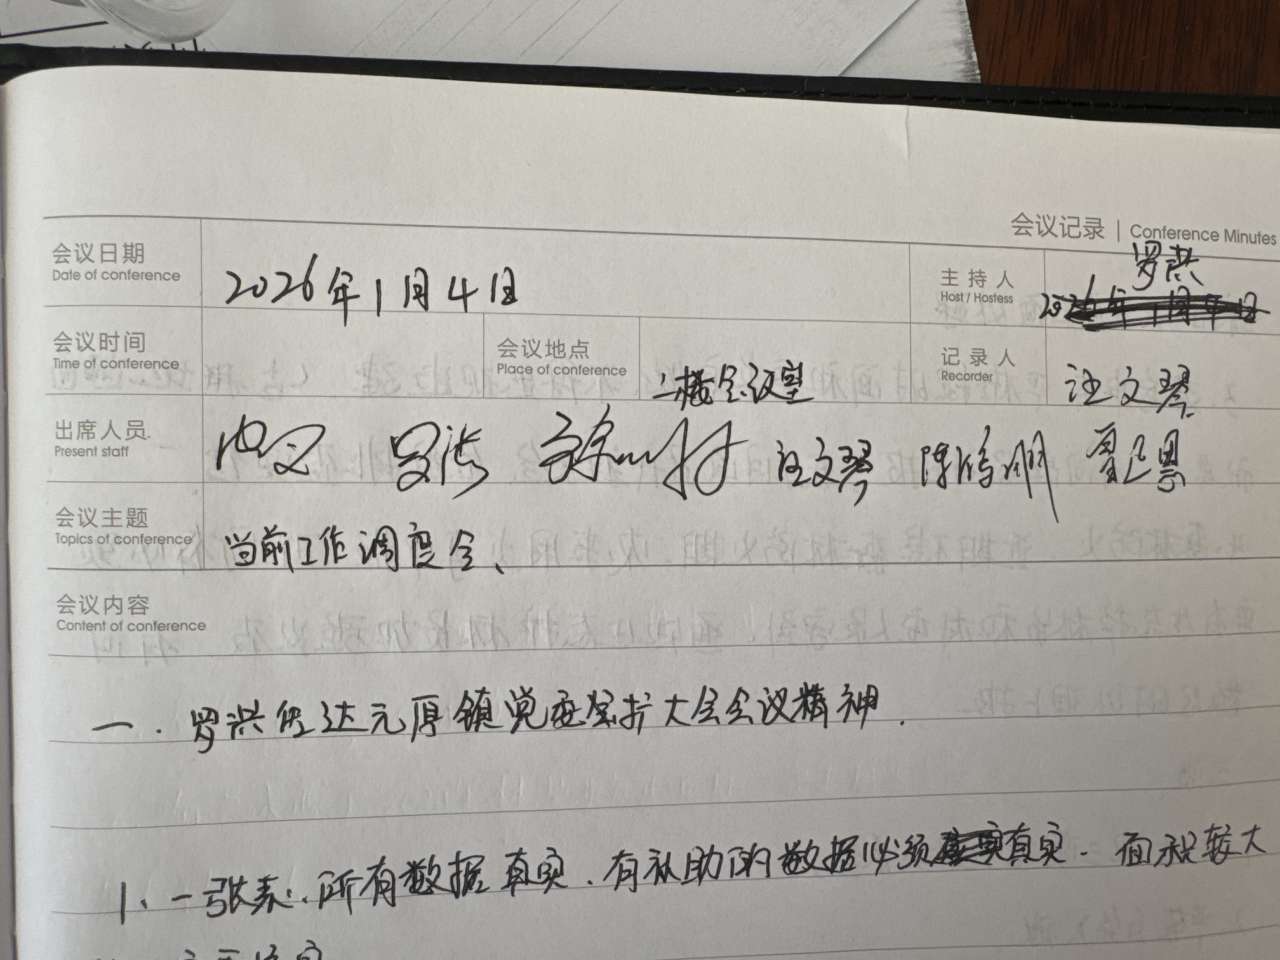 会议记录 | Conference Minutes
会议日期 2026年1月4日 主持人 罗洪
Date of conference Host / Hostess
会议时间 会议地点 二楼会议室 记录人 汪文琴
Time of conference Place of conference Recorder
出席人员 罗洪 汪文琴
Present staff
会议主题 当前工作调度会、
Topics of conference
会议内容
Content of conference
一.罗洪传达元厚镇党委扩大会会议精神.
1、一张表:所有数据真实、有补助的数据必须真实.面积较大